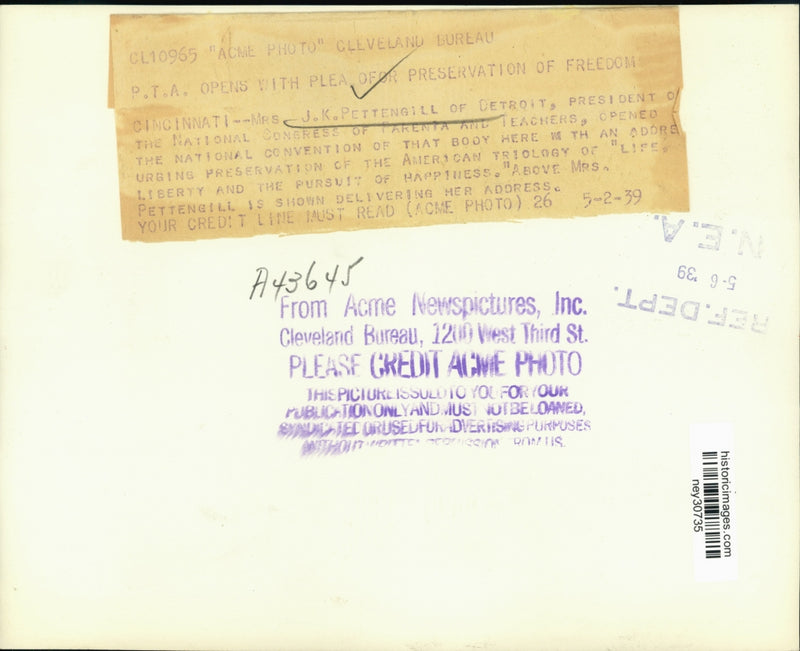 CL10965 "ACME PHOTO" CLEVELAND BUREAU
P.T.A. OPENS WITH PLEA OFOR PRESERVATION OF FREEDOM
CINCINNATI--MRS. J.K.PETTENGILL OF DETROIT, PRESIDENT O
THE NATIONAL CONGRESS OF PARENTA AND TEACHERS, OPENED
THE NATIONAL CONVENTION OF THAT BODY HERE WITH AN ADDRE
URGING PRESERVATION OF THE AMERICAN TRIOLOGY OF "LIFE,
LIBERTY AND THE PURSUIT OF HAPPINESS." ABOVE MRS.
PETTENGILL IS SHOWN DELIVERING HER ADDRESS.
YOUR CREDIT LINE MUST READ (ACME PHOTO) 26 5-2-39
N.E.A.
5-6 '39
REF. DEPT.
A43645
From Acme Newspictures, Inc.
Cleveland Bureau, 1200 West Third St.
PLEASE CREDIT ACME PHOTO
THIS PICTURE IS SOLD TO YOU FOR YOUR
PUBLICATION ONLY AND MUST NOT BE LOANED,
SYNDICATED OR USED FOR ADVERTISING PURPOSES
WITHOUT WRITTEN PERMISSION FROM US.
historicimages.com
ney30735